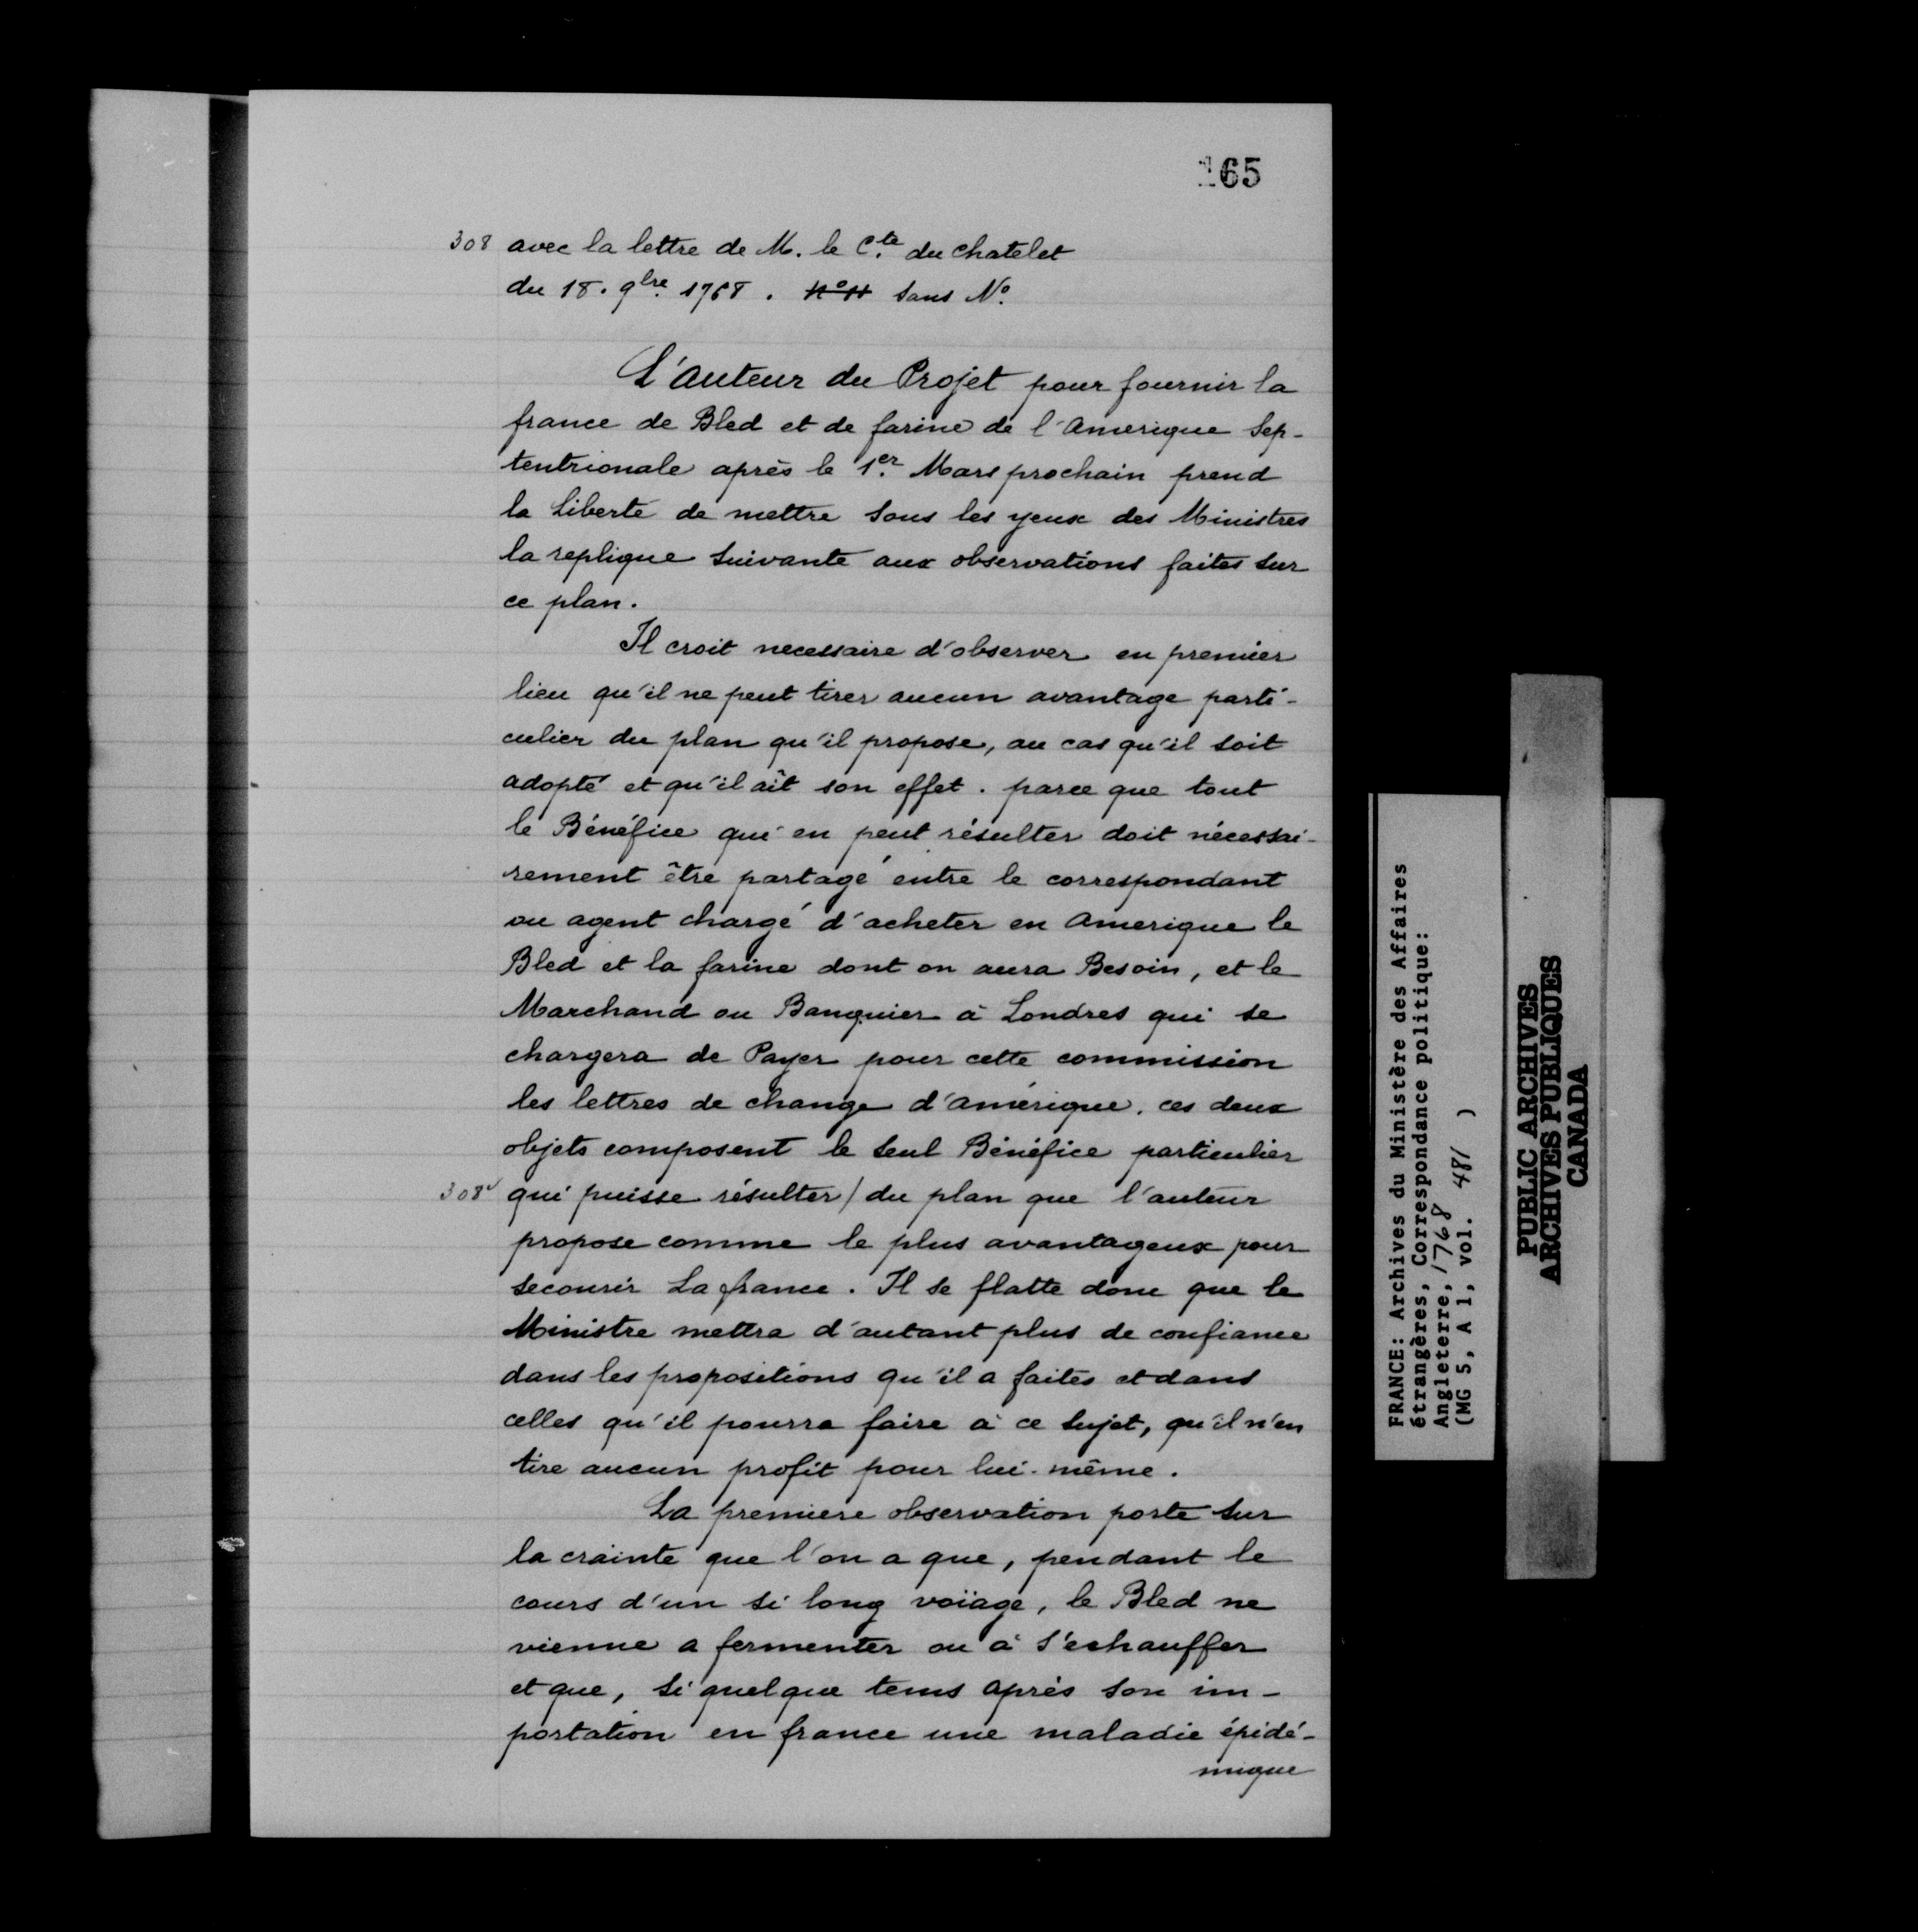 165
308 avec la lettre de M. le C.te du chatelet
du 18. 9bre. 1768. N°11 sans N°.
L'auteur du Projet pour fournir la
france de Bled et de farine de l'Amerique Sep-
tentrionale après le 1er. Mars prochain prend
la Liberté de mettre sous les yeux des Ministres
la replique suivante aux observations faites sur
ce plan.
Il croit necessaire d'observer en premier
lieu qu'il ne peut tirer aucun avantage parti-
culier du plan qu'il propose, au cas qu'il soit
adopté et qu'il aît son effet. parce que tout
le Bénéfice qui en peut résulter doit nécessai-
rement être partagé entre le correspondant
ou agent chargé d'acheter en Amerique le
Bled et la farine dont on aura Besoin, et le
Marchand ou Banquier à Londres qui se
chargera de Payer pour cette commission
les lettres de change d'amérique. ces deux
objets composent le seul Bénéfice particulier
308v qui puisse résulter / du plan que l'auteur
propose comme le plus avantageux pour
secourir La france. Il se flatte donc que le
Ministre mettra d'autant plus de confiance
dans les propositions qu'il a faites et dans
celles qu'il pourra faire à ce sujet, qu'il n'en
tire aucun profit pour lui-même.
La premiere observation porte sur
la crainte que l'on a que, pendant le
cours d'un si long voïage, le Bled ne
vienne a fermenter ou à s'echauffer
et que, si quelque tems après son im-
portation en france une maladie épidé-
mique
FRANCE: Archives du Ministère des Affaires
étrangères, Correspondance politique:
Angleterre, 1768
(MG 5, A 1, vol. 481 )
PUBLIC ARCHIVES
ARCHIVES PUBLIQUES
CANADA